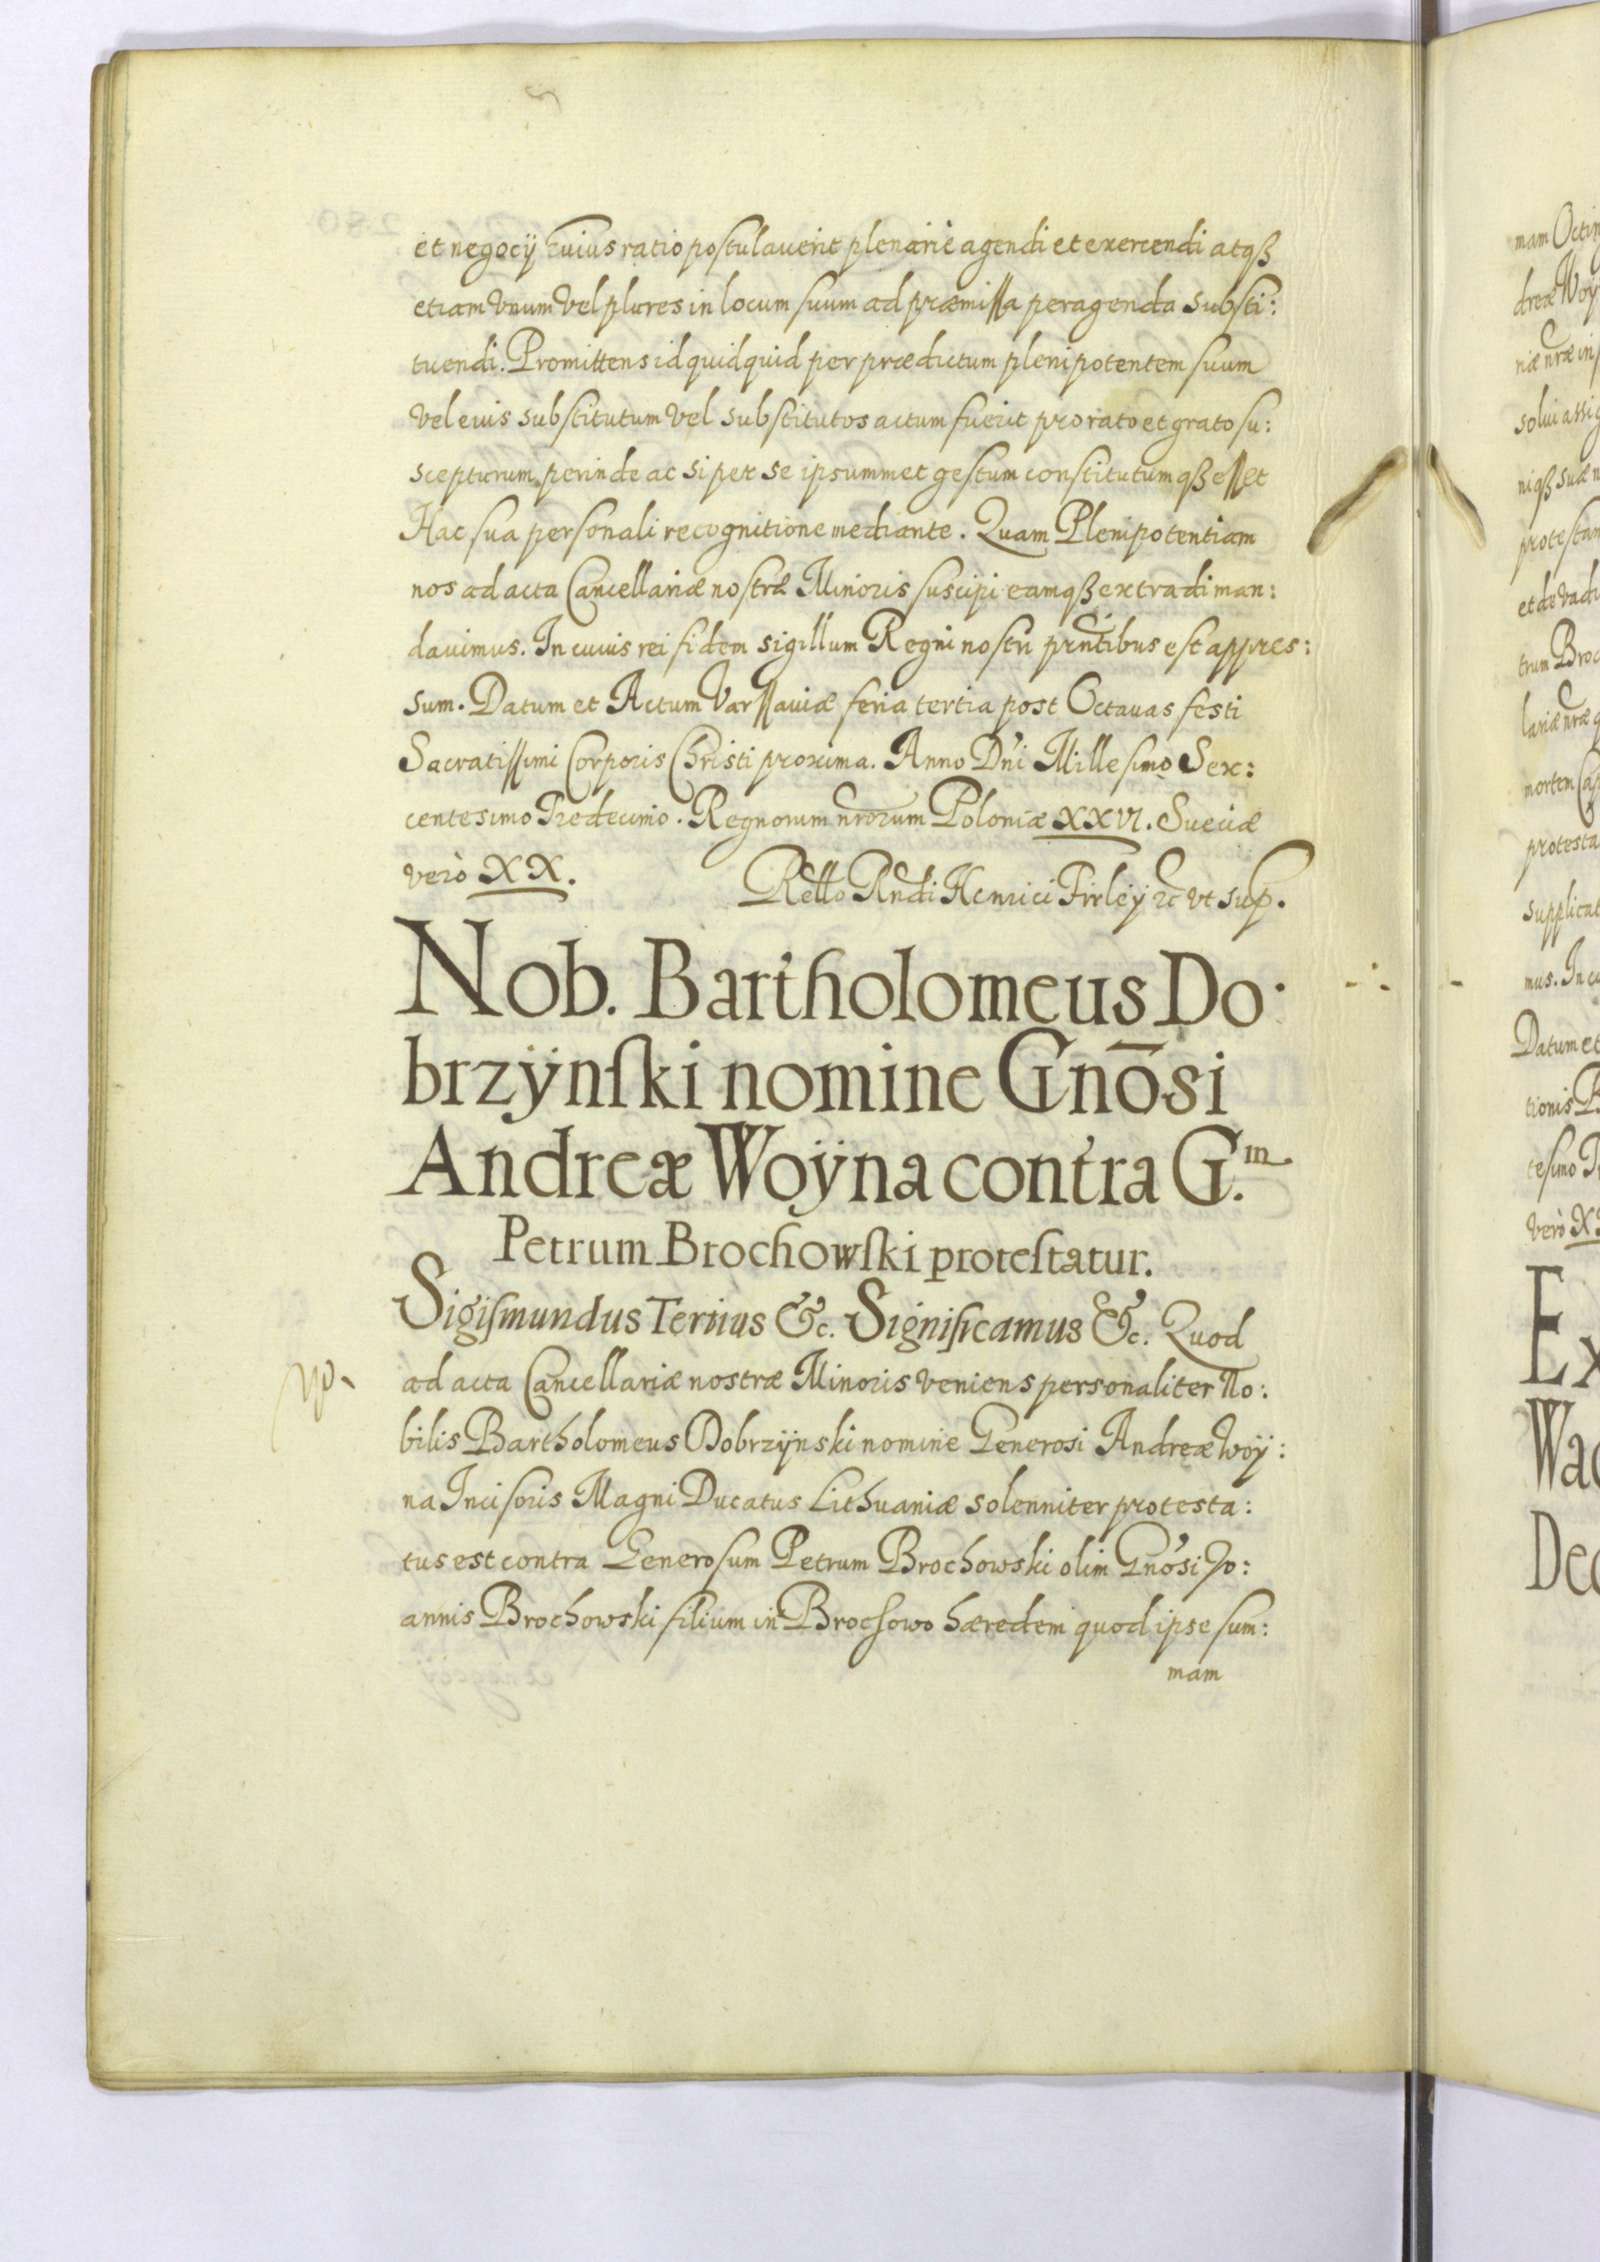 et negocÿ huius ratio postulaverit plenarie agendi et exercendi atqß
etiam Vnum Vel plures in locum suum ad præmissa peragenda substi:
tuendi. Promittens id quidquid per prædictum plenipotentem suum
Vel eius substitutum Vel substitutos actum fuerit pro rato et grato su:
scepturum perinde ac si per se ipsummet gestum constitutumqß esset
Hac sua personali recognitione mediante. Quam Plenipotentiam
nos ad acta Cancellariæ nostræ Minoris suscipi eamqß extradi man:
davimus. In cuius rei fidem sigillum Regni nostri prntibus est appres:
sum. Datum et Actum Varssaviæ feria tertia post Octavas festi
Sacratissimi Corporis Christi proxima. Anno Dni Millesimo Sex:
centesimo Tredecimo. Regnorum nrorum Poloniæ XXVI. Sueciæ
verò XX.
Rello Rndi Henrici Firleÿ &c vt sup.
Nob. Bartholomeus Do:
brzÿnski nomine Gnōsi
Andreæ Woÿna contra G.m
Petrum Brochowski protestatur.
Sigismundus Tertius &c. Significamus &c. Quod
ad acta Cancellariæ nostræ Minoris veniens personaliter No:
bilis Bartholomeus Dobrzÿnski nomine Generosi Andreæ Woÿ:
na Incisoris Magni Ducatus Lithuaniæ solenniter protesta:
tus est contra Generosum Petrum Brochowski olim Gnosi Jo:
annis Brochowski filium in Brochowo hæredem quod ipse sum:
mam
mam
dreæ Woÿ
niæ nræ in
niqß suæ
et de vadi
trum Broc
lariæ nræ
protesta
supplicat
Datum et
tionis
tesimo
verò X
Ex
Wac
Dec